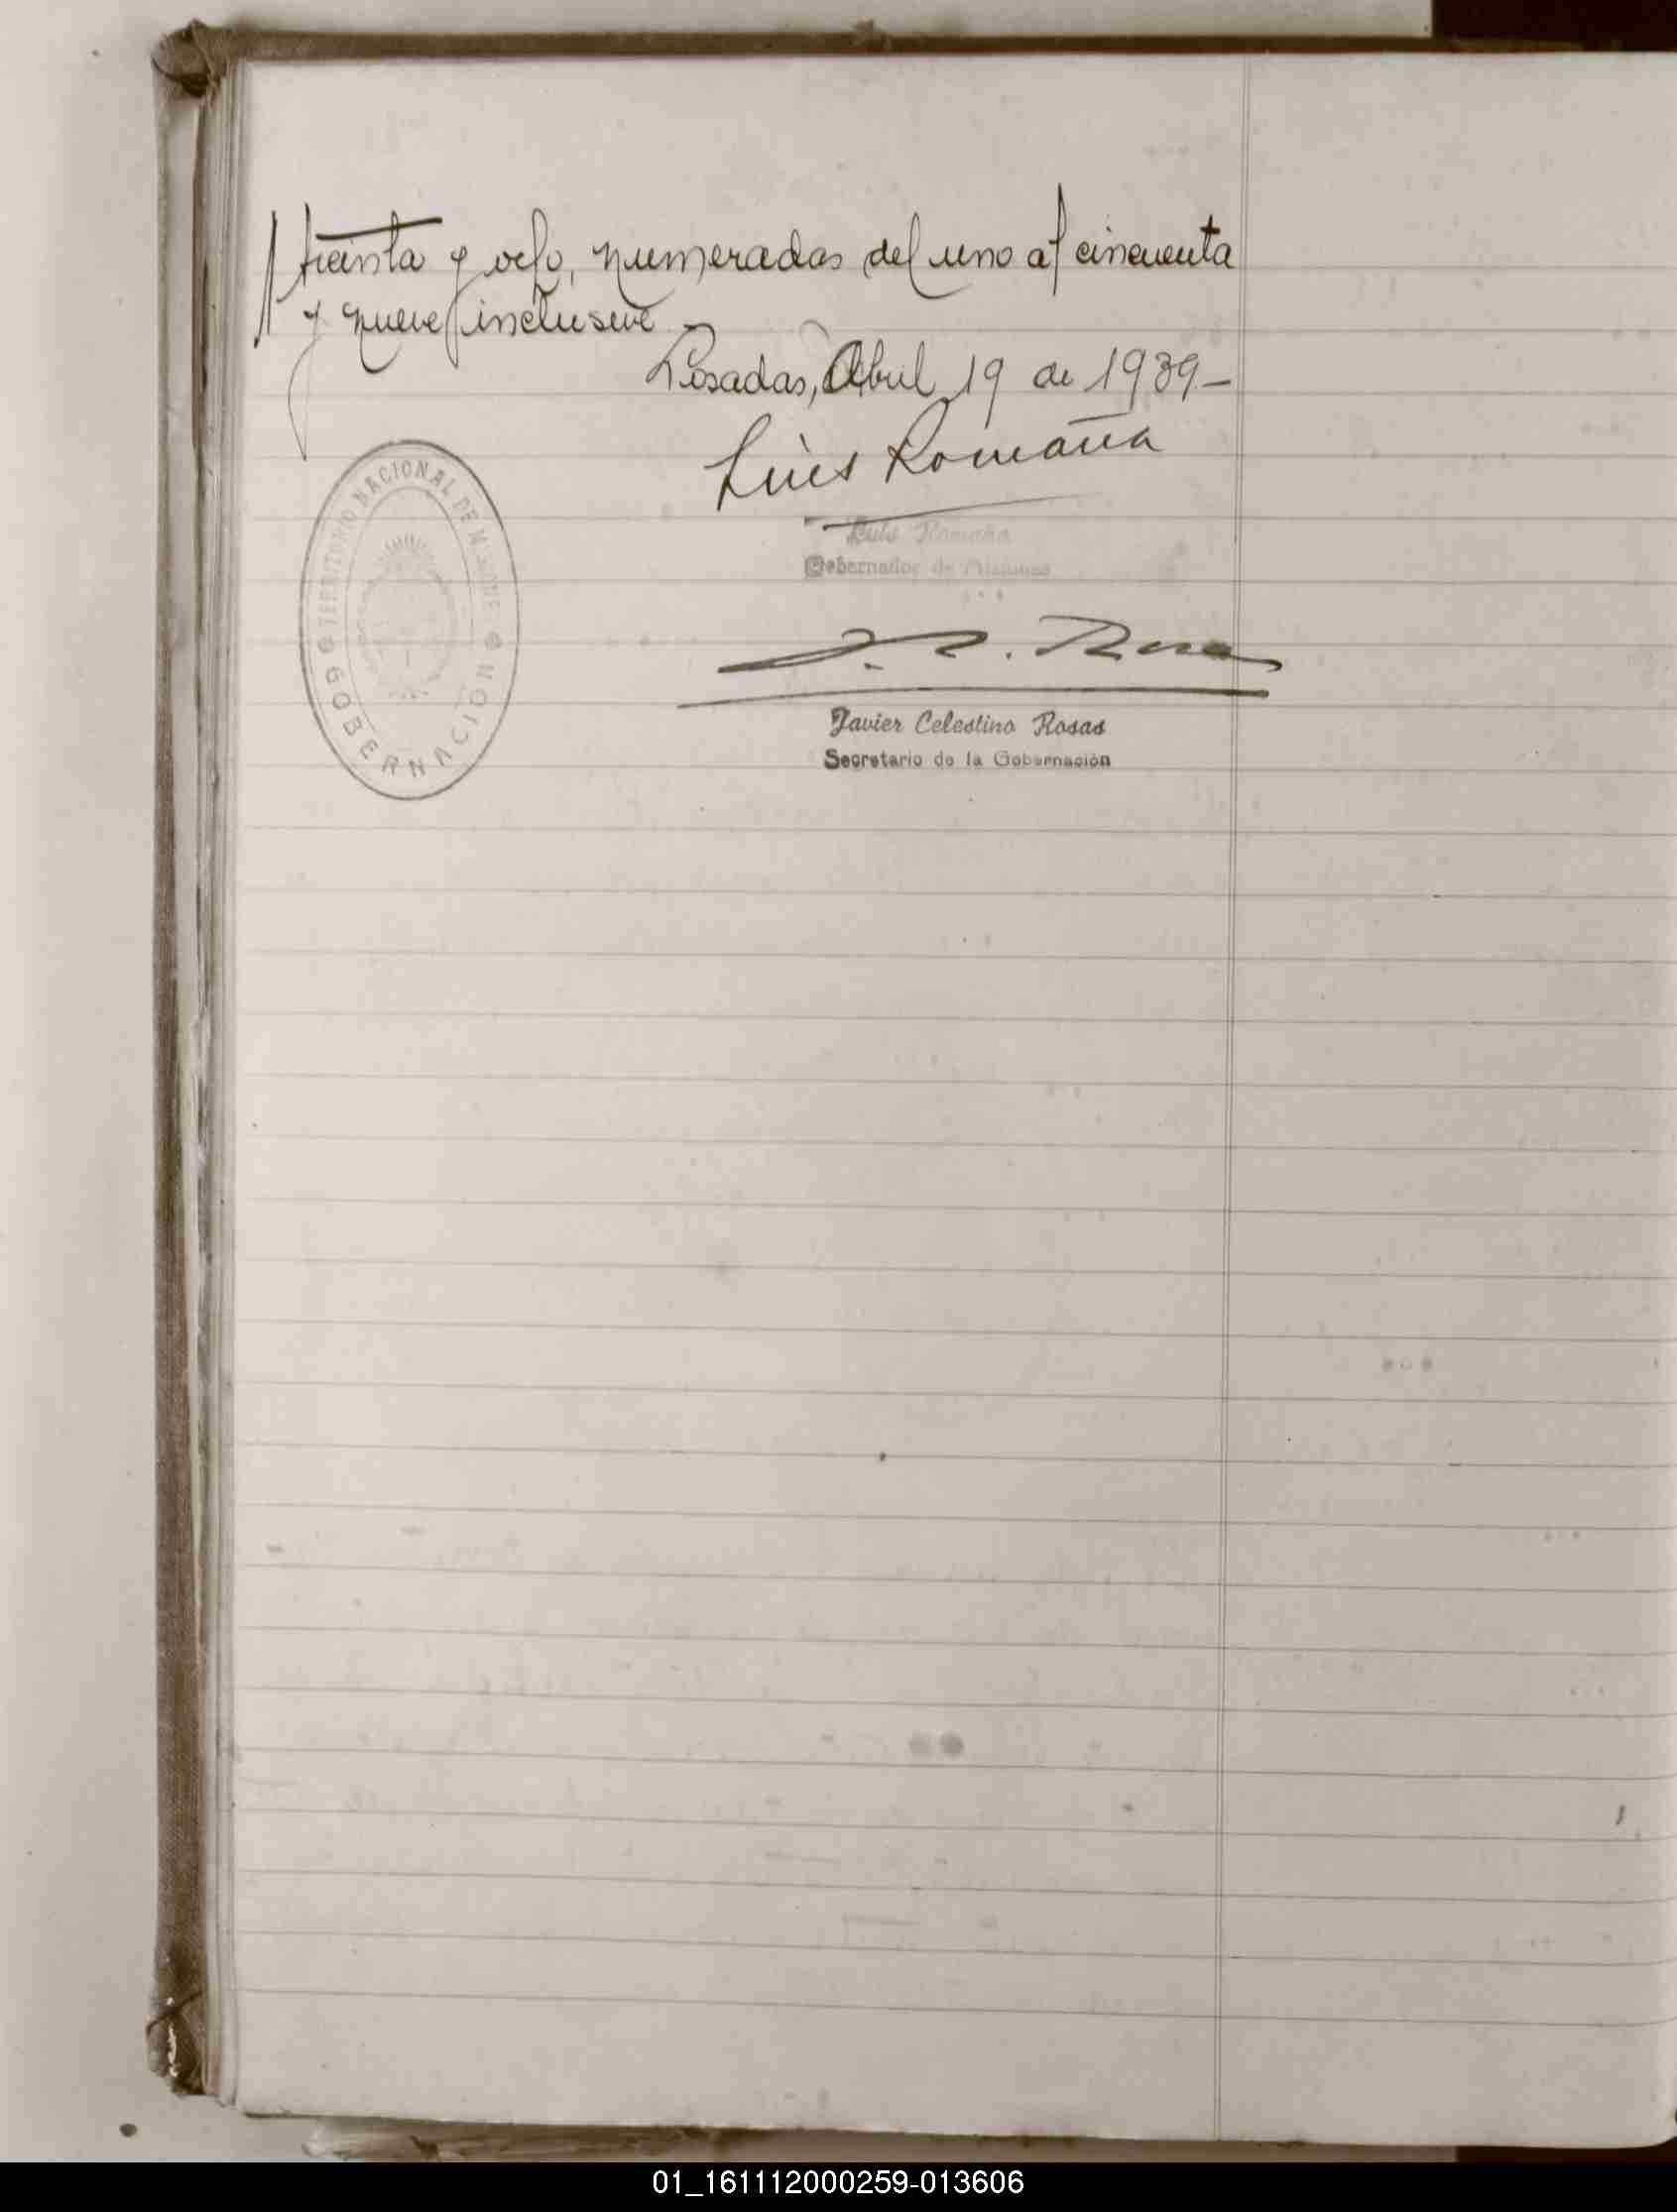 // treinta y ocho, numeradas del uno al cincuenta
y nueve inclusive
Posadas, Abril 19 de 1939 –
Luis Romaña
Luis Romaña
Gobernador de Misiones
TERRITORIO NACIONAL DE MISIONES
GOBERNACION
J. C. Rosas
Javier Celestino Rosas
Secretario de la Gobernación
01_161112000259-013606